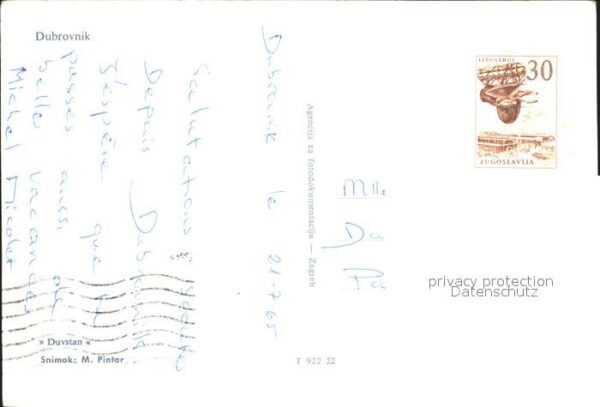 Dubrovnik
Dubrovnik le 21-7-65
Salutations
Depuis Dubrovnik
J'éspère que tu
passes aussi de
belle vacances
Michel Nicolet
» Duvstan «
Snimak: M. Pintar
Agencija za fotodokumentaciju — Zagreb
T 922 22
LITOSTROJ 30
JUGOSLAVIJA
Mlle
Du
Pa
privacy protection
Datenschutz